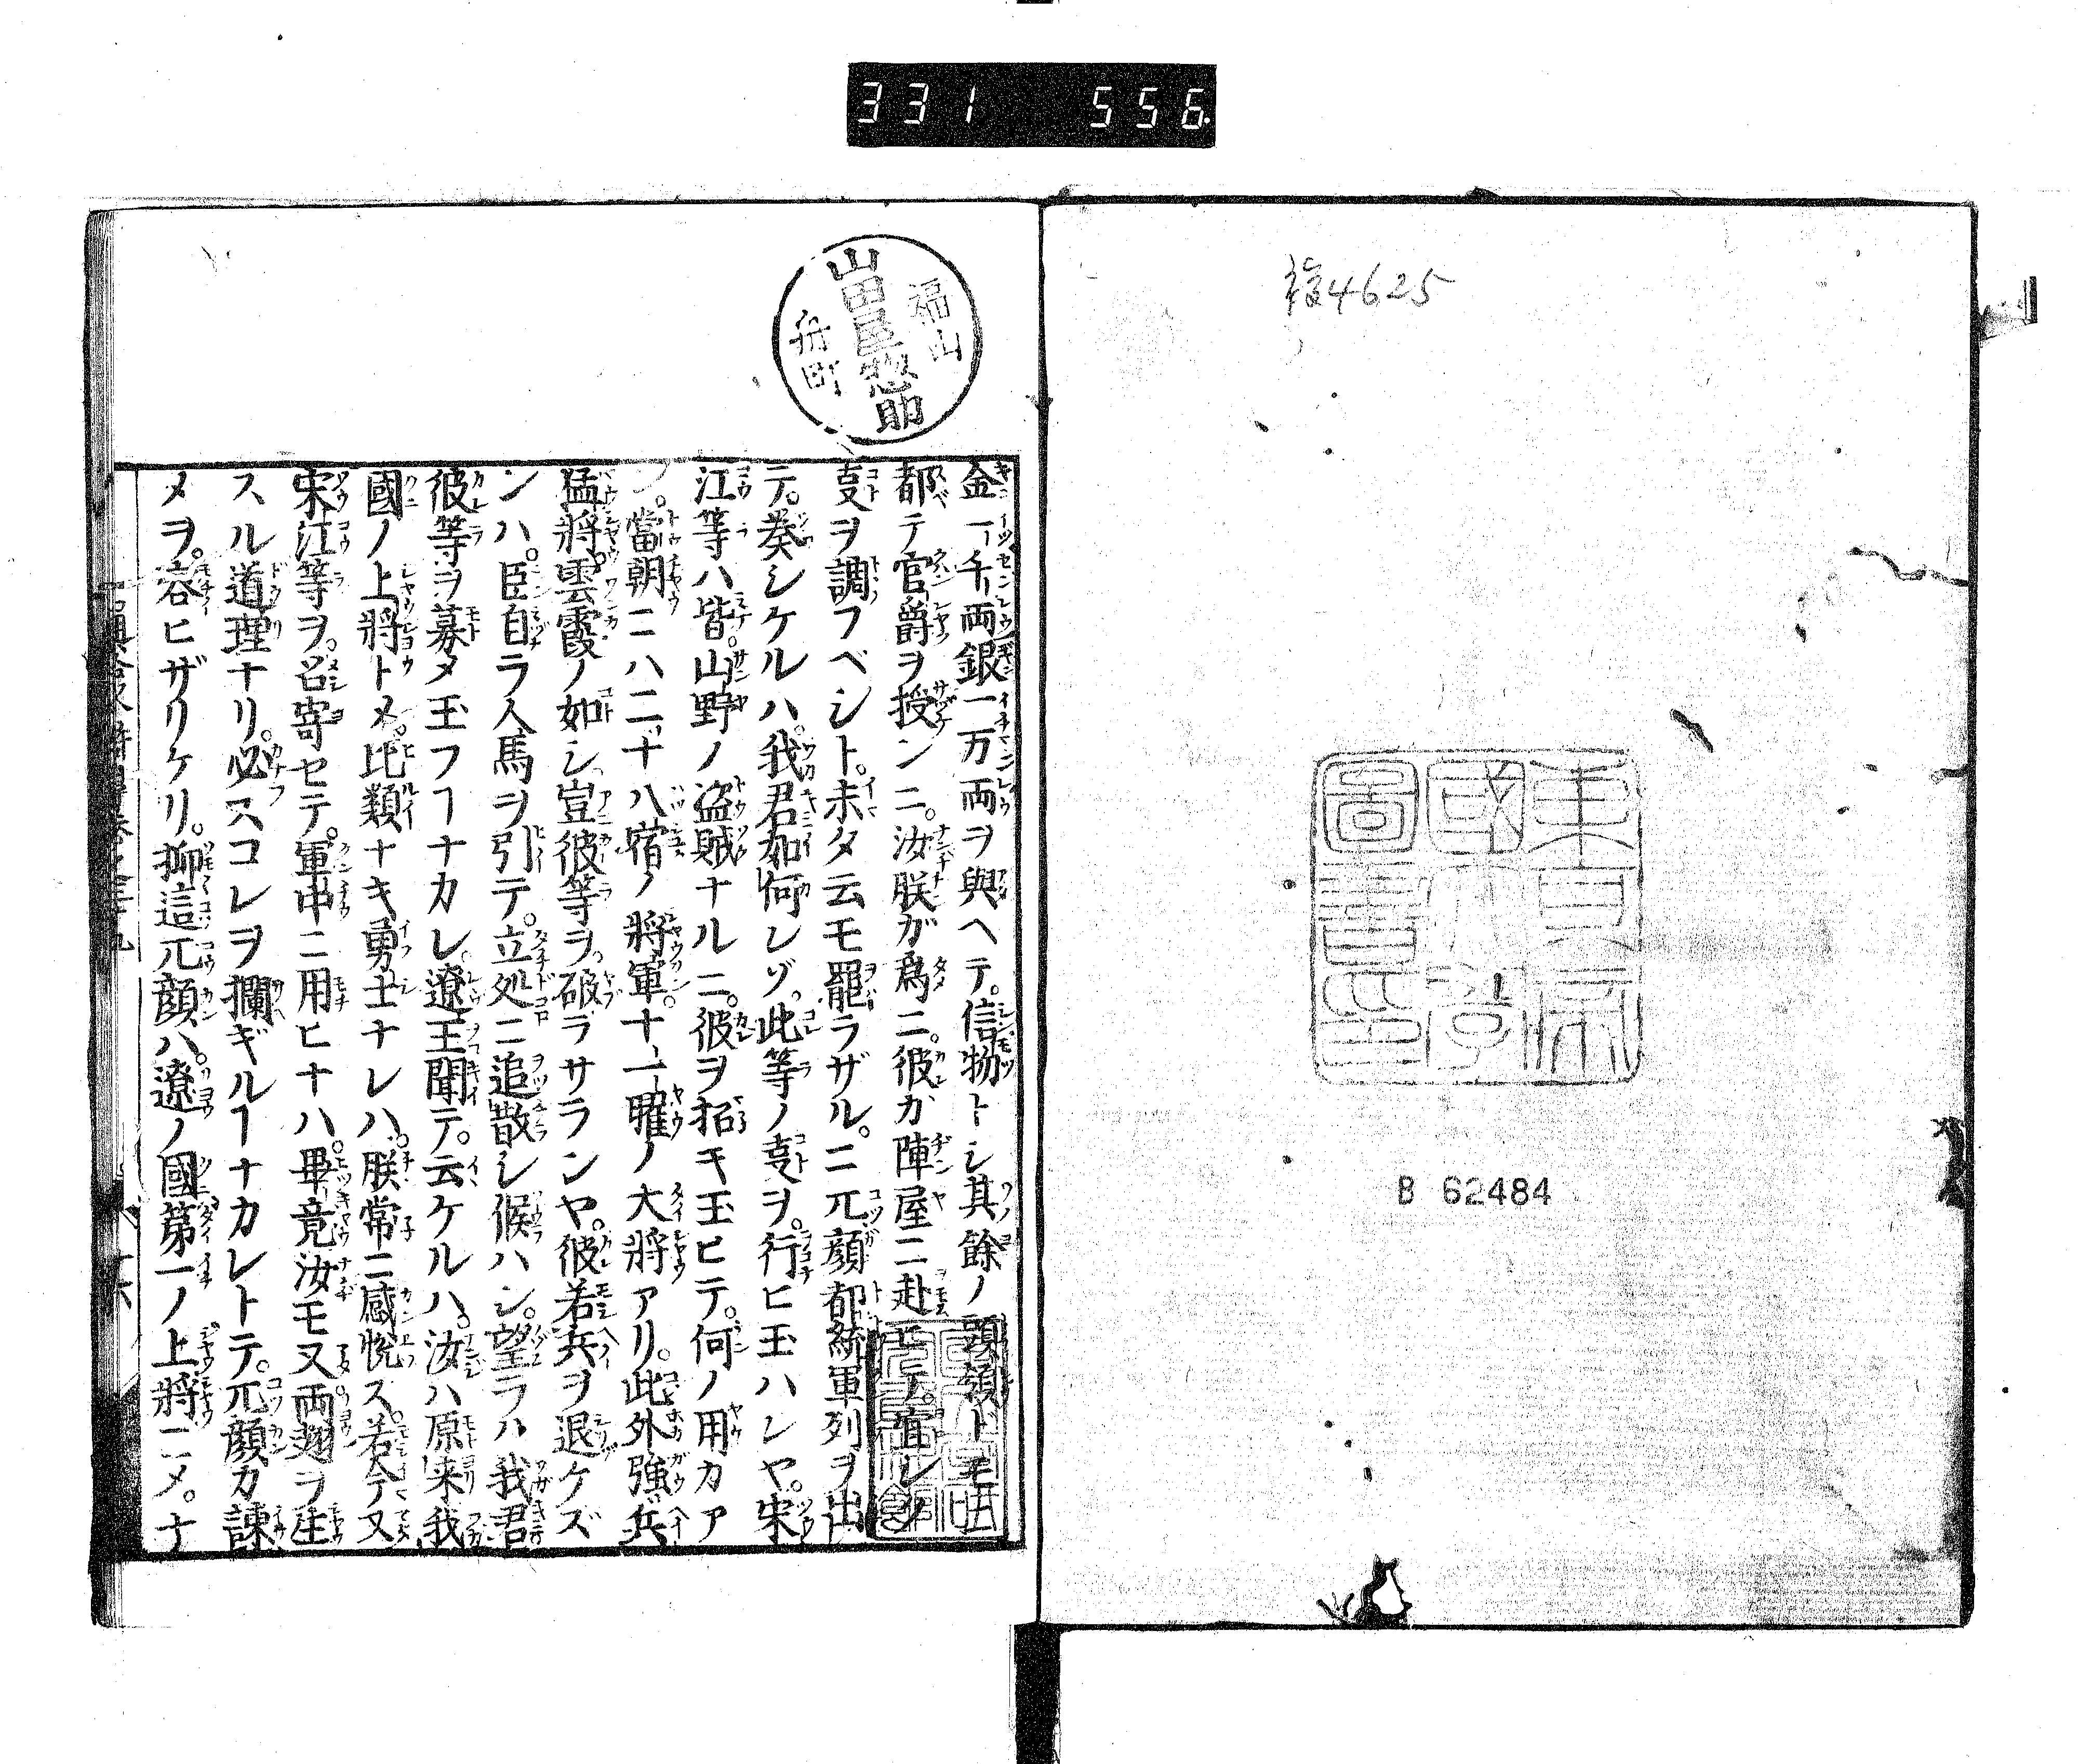 331 556
複4625
東京帝國大學圖書印
B 62484
福山
山田屋惣助
舟町
金一千両銀一万両ヲ與ヘテ。信物トシ其餘ノ頭領ドモ
都テ官爵ヲ授ンニ。汝朕ガ爲ニ。彼カ陣屋ニ赴
叓ヲ調フベシト。未タ云モ罷ラザル。ニ兀顔都統軍列ヲ出
テ。奏シケルハ。我君如何レゾ。此等ノ叓ヲ。行ヒ玉ハレヤ。宋
江等ハ皆。山野ノ盗賊ナルニ。彼ヲ招キ玉ヒテ。何ノ用カア
ラ。當朝ニハ二十八宿ノ將軍。十一曜ノ大將アリ。此外強兵
猛將。雲霞ノ如シ豈彼等ヲ破ラサランヤ。彼若兵ヲ退ケズ
ンハ。臣自ラ人馬ヲ引テ。立処ニ追散シ候ハン。望ラハ我君
彼等ヲ募タ玉フヿナカレ遼王聞テ。云ケルハ。汝ハ原来我
國ノ上將トメ。比類ナキ勇士ナレハ。朕常ニ感悦ス。若今又
宋江等ヲ。召寄セテ。軍中ニ用ヒナハ。畢竟汝モ又両翅ヲ生
スル道理ナリ。必スコレヲ攔ギルヿナカレトテ。兀顔カ諫
メヲ。容ヒザリケリ。抑這兀顔ハ。遼ノ國第一ノ上將ニメ。ナ